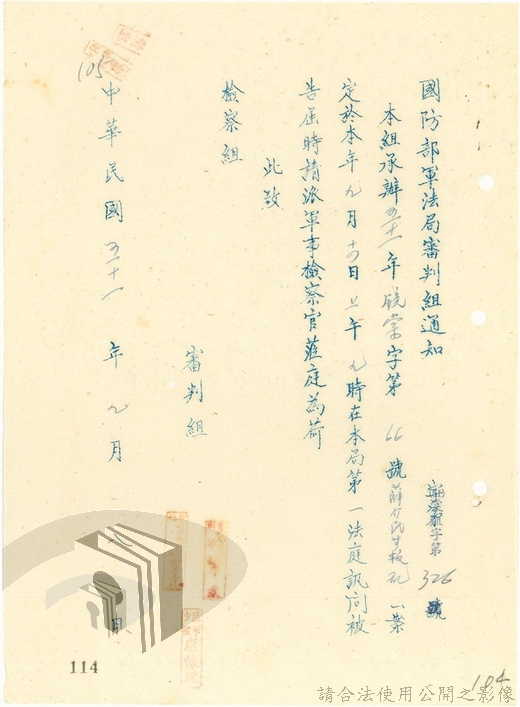 國防部軍法局審判組通知
字第326號
本組承辦五十一年晥棠字第66號薛介民等叛亂一案
定於本年九月十四日上午九時在本局第一法庭訊問被
告屆時請派軍事檢察官蒞庭為荷
此致
檢察組
審判組
中華民國五十一年九月 日
105
114
184
請合法使用公開之影像